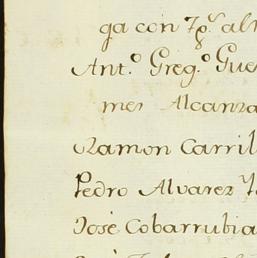 ga con
Ant.º Greg.º Gue
mes Alcanza
Ramon Carril
Pedro Alvarez
José Cobarrubia